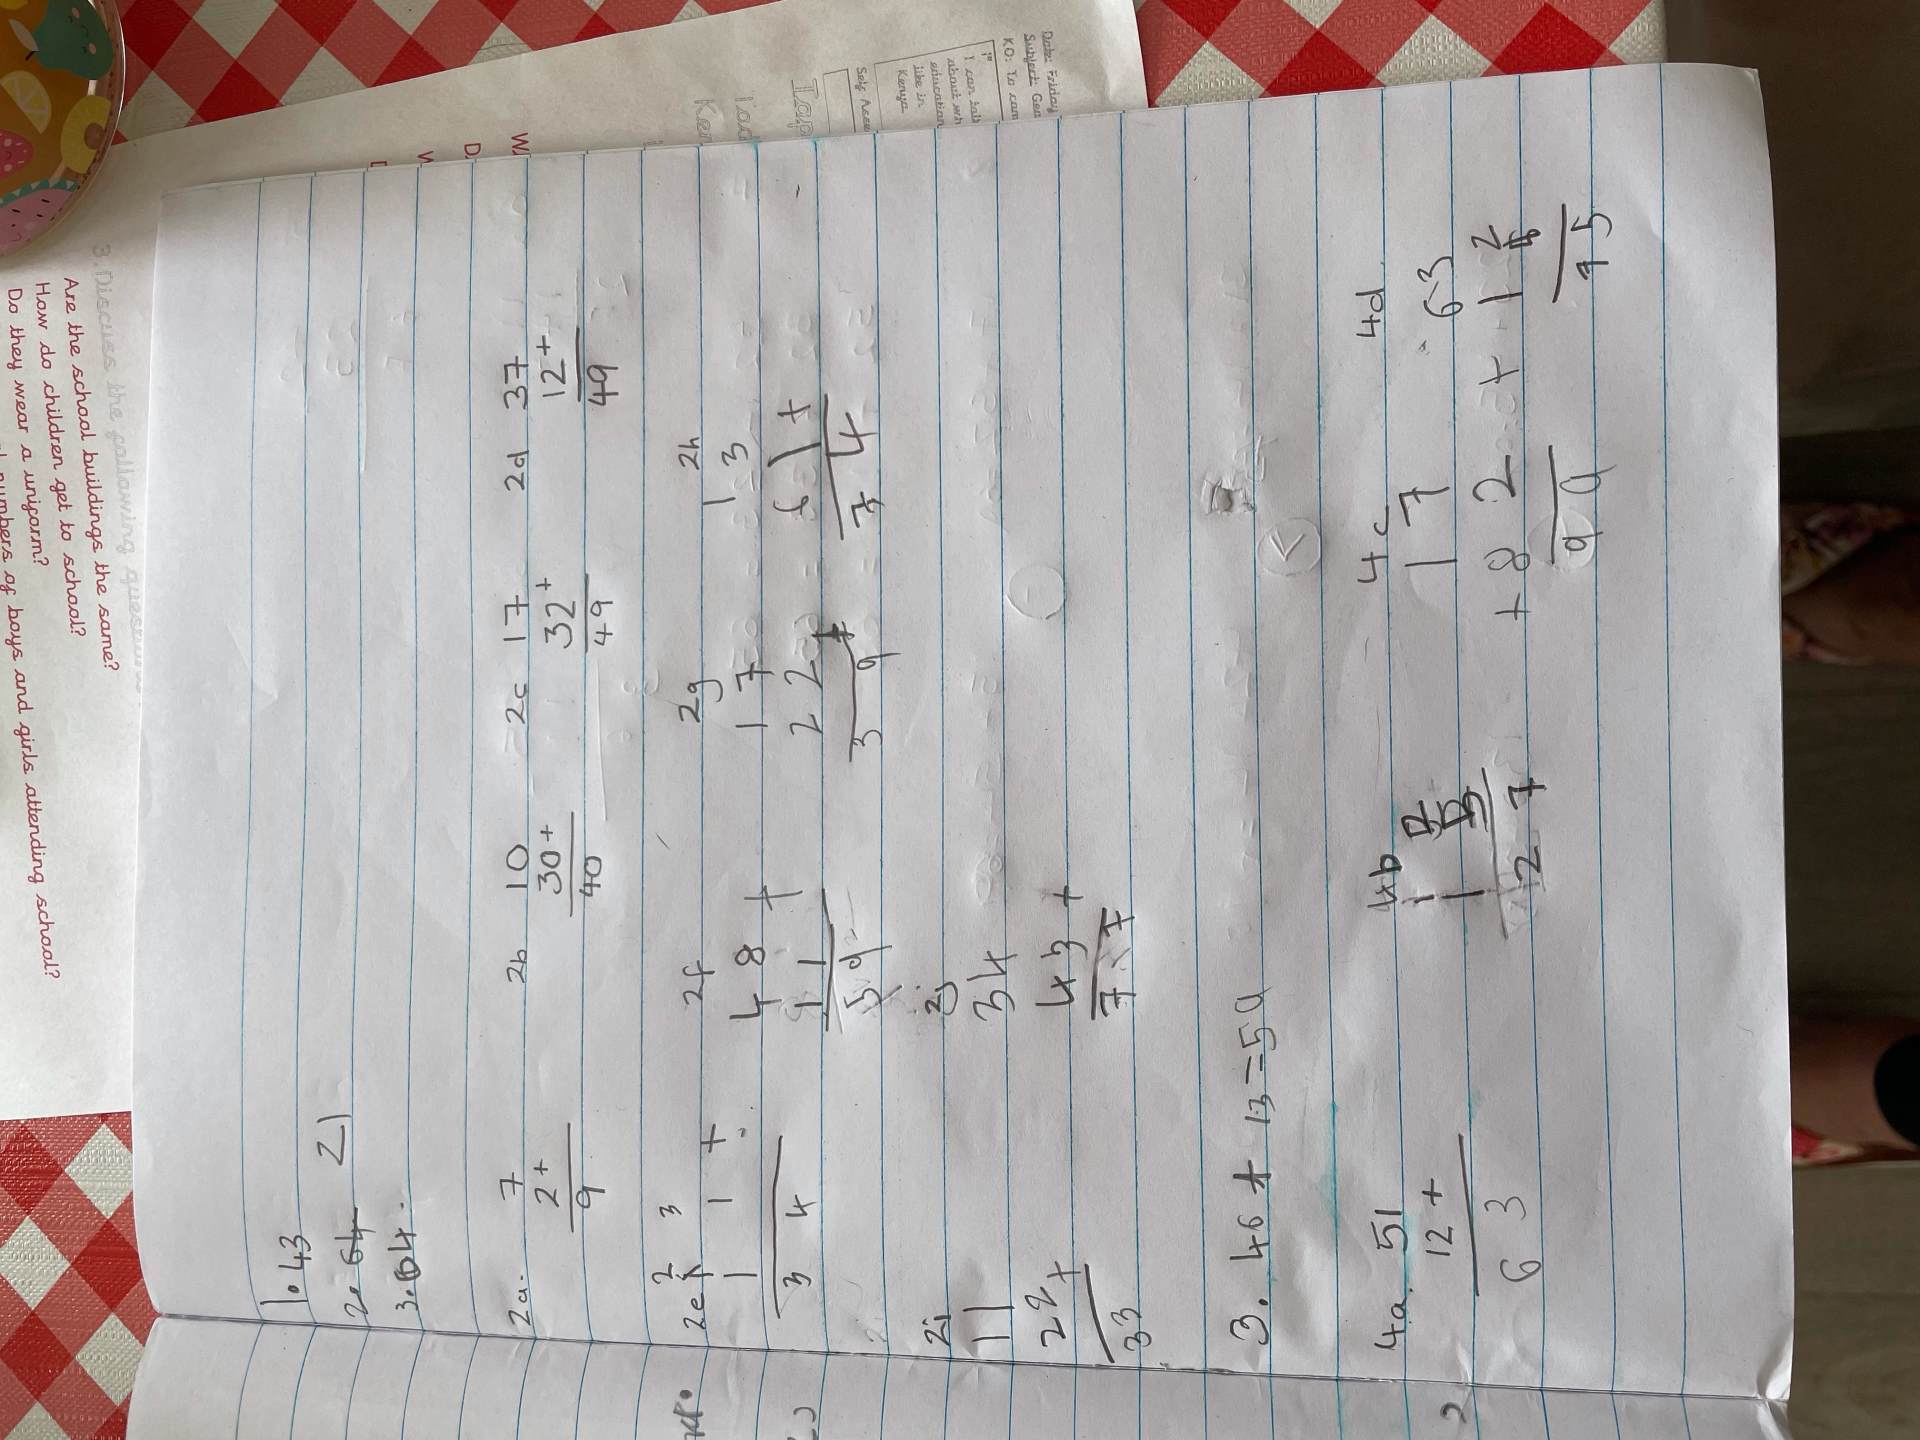 1. 43
2. 64 21
3. 64.
2a. 7 2b 10 2c 17 2d 37
2+ 30+ 32+ 12+
9 40 49 49
2e 2f 2g 2h
23 48+ 17 13
11+ 11 22+ 61+
34 59 39 74
2i 2j
11 34
22+ 43+
33 77
3. 46 + 13 = 59
4a. 51 4b 4c 4d
12+ 17 63
63 + 82 + 12
27 99 75
3. Discuss the following
Are the school buildings the same?
How do children get to school?
Do they wear a uniform?
numbers of boys and girls attending school?
Date: Friday
Subject: Geo
KO: To
I can talk
about wh
education
like in
Kenya
Self Asse